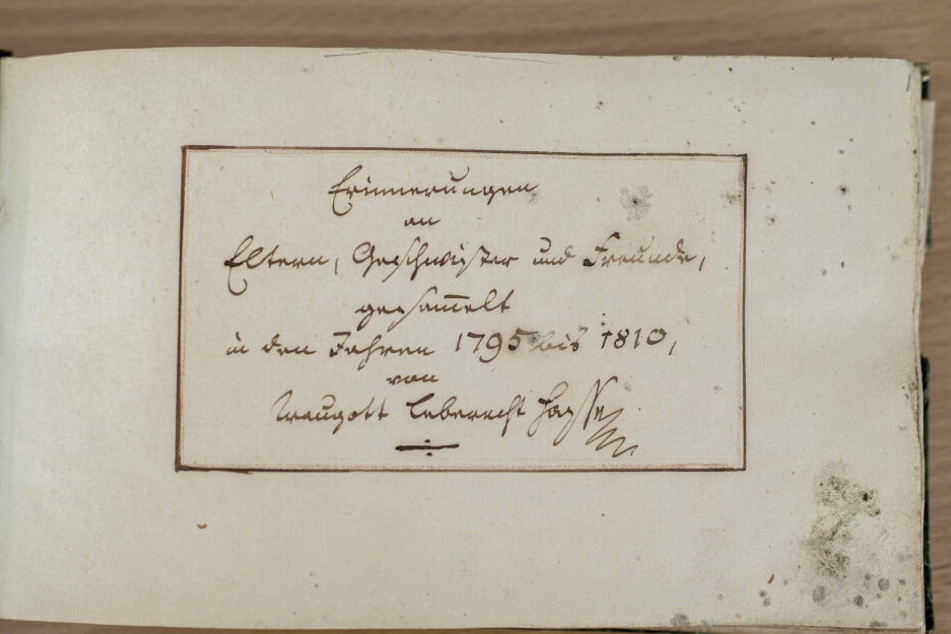 Erinnerungen
an
Eltern, Geschwister und Freunde,
gesam̅elt
in den Jahren 1795 bis 1810,
von
Traugott Leberecht Hasse